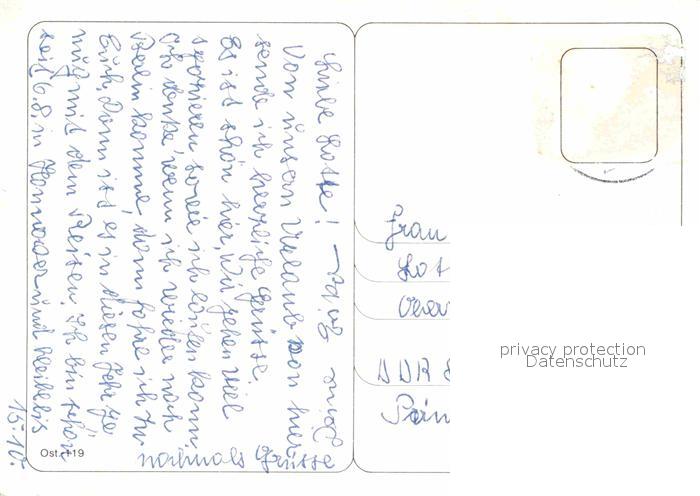 Liebe Lotte!
Von unsern Urlaub von hier
sende ich herzliche Grüsse.
Es ist schön hier, wir gehen viel
spazieren soviel ich laufen kann,
Ich denke, wenn ich wieder nach
Berlin komme, dann fahre ich zu
Euch, Dann ist es in diesen Jahr ge
nug mit dem Reisen. Ich bin schon
seit 6.8. in Hannover und bleibe bis
15.10.
nochmals Grüsse
Frau
Lot
DDR
Ost. 119
privacy protection
Datenschutz